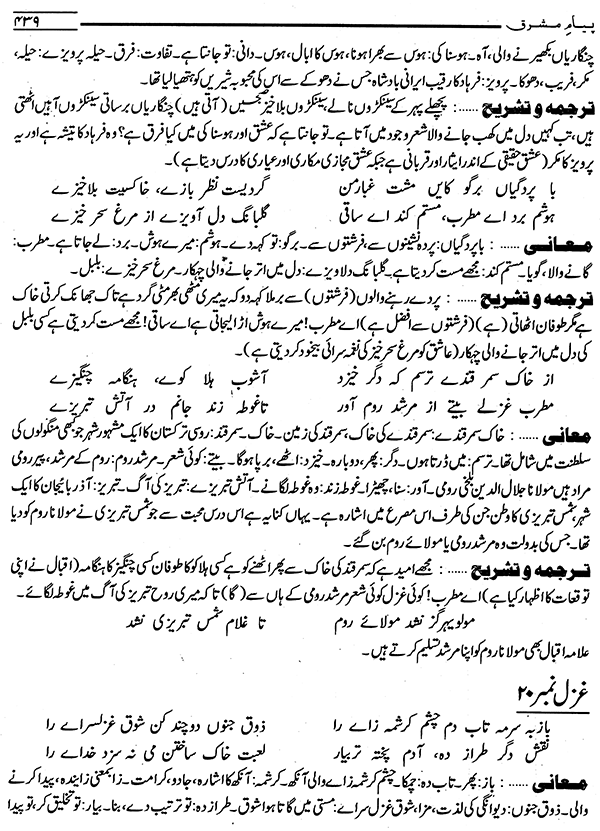 پیامِ مشرق ۴۳۹
چنگاریاں بکھیرنے والی، آہ۔ ہوسناکی: ہوس سے بھرا ہونا، ہوس کا ابال، ہوس۔ دانی: تو جانتا ہے۔ تفاوت: فرق۔ حیلہ پرویزے: حیلہ،
مکر، فریب، دھوکا۔ پرویز: فرہاد کا رقیب ایرانی بادشاہ جس نے دھوکے سے اس کی محبوبہ شیریں کو ہتھیا لیا تھا۔
ترجمہ و تشریح ...... : پچھلے پہر کے سینکڑوں نالے، سینکڑوں بلا خیز صبحیں (آتی ہیں) سینکڑوں چنگاریاں برساتی آہیں اٹھتی
ہیں، تب کہیں دل میں کھب جانے والا شعر وجود میں آتا ہے۔ تو جانتا ہے کہ عشق اور ہوسناکی میں کیا فرق ہے؟ وہ فرہاد کا تیشہ ہے اور یہ
پرویز کا مکر (عشق حقیقی کے اندر ایثار اور قربانی ہے جبکہ عشق مجازی مکاری اور عیاری کا درس دیتا ہے)۔
با پردگیاں برگو کایں مشت غبار من گردیست نظر بازے، خاکسیت بلا خیزے
ہوشم برد اے مطرب، مستم کند اے ساقی گلبانگ دل آویزے از مرغ سحر خیزے
معانی ...... : با پردگیاں: پردہ نشینوں سے، فرشتوں سے۔ برگو: تو کہہ دے۔ ہوشم: میرے ہوش۔ برد: لے جاتا ہے۔ مطرب:
گانے والا، گویا۔ مستم کند: مجھے مست کر دیتا ہے۔ گلبانگ دلاویزے: دل میں اتر جانے والی چہکار۔ مرغ سحر خیزے: بلبل۔
ترجمہ و تشریح ...... : پردے میں رہنے والوں (فرشتوں) سے برملا کہہ دو کہ یہ میری مٹھی بھر مٹی گرد ہے تاک جھانک کرتی خاک
ہے مگر طوفان اٹھاتی (ہے) (فرشتوں سے افضل ہے) اے مطرب! میرے ہوش اڑا لیجاتی ہے اے ساقی! مجھے مست کر دیتی ہے کسی بلبل
کی دل میں اتر جانے والی چہکار (عاشق کو مرغ سحر خیز کی نغمہ سرائی بیخود کر دیتی ہے)۔
از خاک سمر قندے ترسم کہ دگر خیزد آشوب ہلا کوے، ہنگامہ چنگیزے
مطرب غزلے بیتے از مرشد روم آور تا غوطہ زند جانم در آتش تبریزے
معانی ...... : خاک سمر قندے: سمر قندے کی خاک، سمر قند کی زمین۔ خاک۔ سمر قند: روسی ترکستان کا ایک مشہور شہر جو کبھی منگولوں کی
سلطنت میں شامل تھا۔ ترسم: میں ڈرتا ہوں۔ دگر: پھر، دوبارہ۔ خیزد: اٹھے، برپا ہوگا۔ بیتے: کوئی شعر۔ مرشد روم: روم کے مرشد، پیر رومی
مراد ہیں مولانا جلال الدین بلخی رومی۔ آور: سنا، چھیڑا۔ غوطہ زند: وہ غوطہ لگائے۔ آتش تبریزے: تبریز کی آگ۔ تبریز: آذربائیجان کا ایک
شہر، شمس تبریزی کا وطن جن کی طرف اس مصرع میں اشارہ ہے۔ یہاں کنایہ ہے اس درس محبت سے جو شمس تبریزی نے مولانا روم کو دیا
تھا۔ جس کی بدولت وہ مرشد رومی یا مولائے روم بن گئے۔
ترجمہ و تشریح ...... : مجھے امید ہے کہ سمر قند کی خاک سے پھر اٹھنے کو ہے کسی ہلاکو کا طوفان کسی چنگیز کا ہنگامہ (اقبال نے اپنی
توقعات کا اظہار کیا ہے) اے مطرب! کوئی غزل کوئی شعر مرشد رومی کے ہاں سے (گا) تا کہ میری روح تبریز کی آگ میں غوطہ لگائے۔
مولوی ہرگز نشد مولائے روم تا غلام شمس تبریزی نشد
علامہ اقبال بھی مولانا روم کو اپنا مرشد تسلیم کرتے ہیں۔
غزل نمبر ۲۰
باز بہ سرمہ تاب دہ چشم کرشمہ زاے را ذوق جنوں دو چند کن شوق غزلسراے را
نقش دگر طراز دہ، آدم پختہ تر بیار لعبت خاک ساختن می نہ سزد خداے را
معانی ...... : باز: پھر۔ تاب دہ: چمکا۔ چشم کرشمہ زاے: کرشمہ زاے والی آنکھ۔ کرشمہ: آنکھ کا اشارہ، جادو، کرامت۔ زا بمعنی زایندہ، پیدا کرنے
والی۔ ذوق جنوں: دیوانگی کی لذت، مزا، شوق غزل سراے: مستی میں گاتا ہوا شوق۔ طراز دہ: تو ترتیب دے، بنا۔ بیار: تو تخلیق کر، تو پیدا